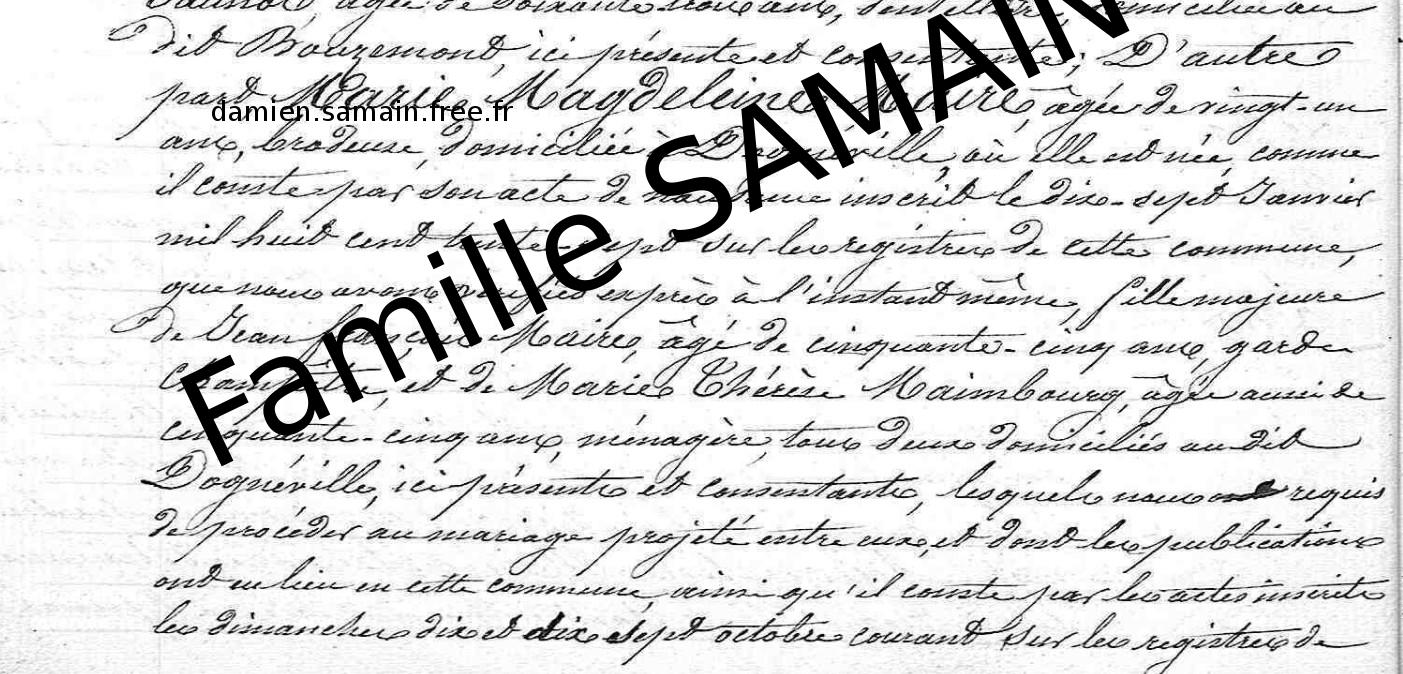 âgée de soixante trois ans, dentellière, domiciliée au
dit Bouzemont, ici présente et consentante; D'autre
part Marie Magdeleine Maire, âgée de vingt-un
damien.samain.free.fr
ans, brodeuse, domiciliée à Dognéville où elle est née, comme
il conste par son acte de naissance inscrit le dix-sept Janvier
mil huit cent trente-sept sur les registres de cette commune,
Famille SAMAIN
que nous avons vérifiés exprès à l'instant même, fille majeure
de Jean françois Maire, âgé de cinquante-cinq ans, garde
Champêtre, et de Marie Thérèse Maimbourg, âgée aussi de
cinquante-cinq ans, ménagère, tous deux domiciliés au dit
Dognéville, ici présents et consentants, lesquels nous ont requis
de procéder au mariage projeté entre eux, et dont les publications
ont eu lieu en cette commune, ainsi qu'il conste par les actes inscrits
les dimanches dix et dix sept octobre courant sur les registres de